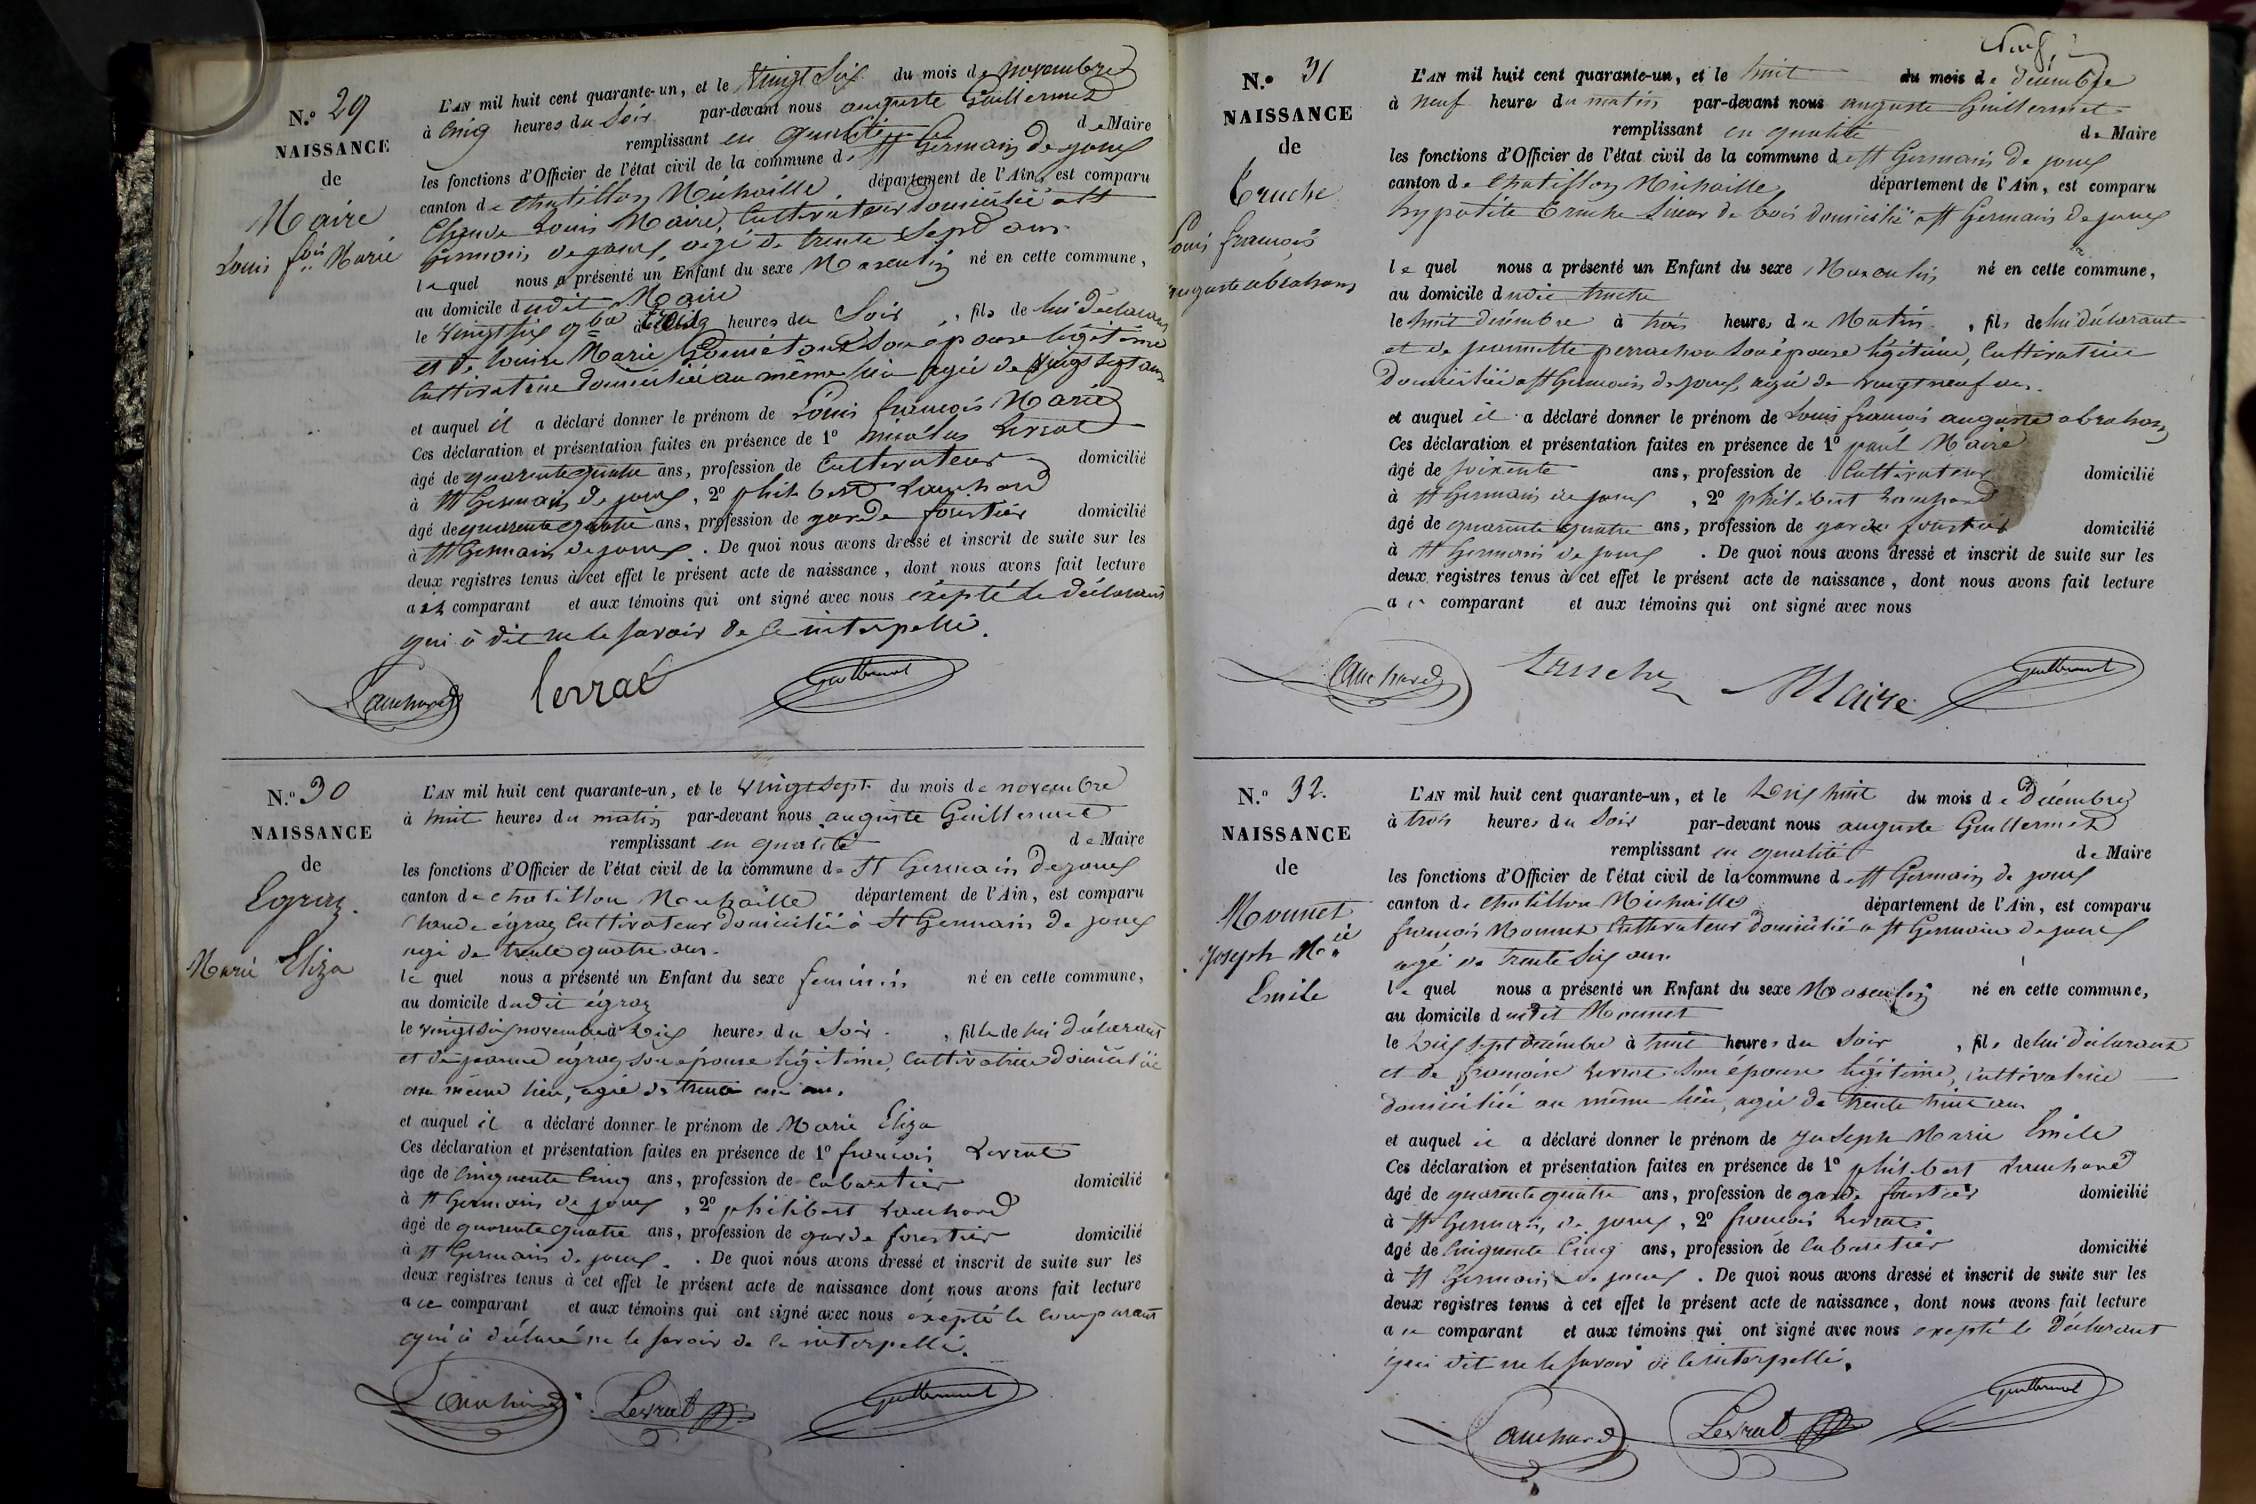 N.° 29
NAISSANCE
de
Maire
Louis fois Marie
L'AN mil huit cent quarante-un, et le vingt Six du mois de novembre
à Cinq heures du Soir par-devant nous auguste Guillermet
remplissant en qualité de Maire
les fonctions d'Officier de l'état civil de la commune de St Germain de joux
canton de Chatillon Michaille département de l'Ain, est comparu
Louis Maire, Cultivateur domicilié à St
Germain de joux, agé de trente Sept ans
le quel nous a présenté un Enfant du sexe Masculin né en cette commune,
au domicile dudit Maire
le vingt six 9bre à heures du Soir, fils de lui déclarant
et de louise Marie son épouse légitime
Cultivatrice domiciliée au même lieu agée de vingt sept ans
et auquel il a déclaré donner le prénom de Louis françois Marie
Ces déclaration et présentation faites en présence de 1° nicolas Levrat
âgé de quarente quatre ans, profession de Cultivateur domicilié
à St Germain de joux, 2° philibert Lauchard
âgé de quarente quatre ans, profession de garde forestier domicilié
à St Germain de joux. De quoi nous avons dressé et inscrit de suite sur les
deux registres tenus à cet effet le présent acte de naissance, dont nous avons fait lecture
au comparant et aux témoins qui ont signé avec nous éxépté le déclarant
qui à dit ne le savoir de ce interpellé.
Lauchard Levrat Guillermet
N.° 30
NAISSANCE
de
Egraz.
Marie Eliza
L'AN mil huit cent quarante-un, et le vingt sept du mois de novembre
à huit heures du matin par-devant nous auguste Guillermet
remplissant en qualité de Maire
les fonctions d'Officier de l'état civil de la commune de St Germain de joux
canton de chatillon Michaille département de l'Ain, est comparu
Claude égraz Cultivateur domicilié à St Germain de joux
agé de trente quatre ans.
le quel nous a présenté un Enfant du sexe feminin né en cette commune,
au domicile dudit égraz
le vingt six novembre à Dix heures du Soir, fille de lui déclarant
et de jeanne égraz son épouse légitime, Cultivatrice domiciliée
au même lieu, agée de trente ans.
et auquel il a déclaré donner le prénom de Marie Eliza
Ces déclaration et présentation faites en présence de 1° francois Levrat
âgé de Cinquente Cinq ans, profession de Cabaretier domicilié
à St Germain de joux, 2° philibert Lauchard
âgé de quarente quatre ans, profession de garde forestier domicilié
à St Germain de joux. De quoi nous avons dressé et inscrit de suite sur les
deux registres tenus à cet effet le présent acte de naissance dont nous avons fait lecture
a ce comparant et aux témoins qui ont signé avec nous éxépté le comparant
qui à déclaré ne le savoir de ce interpellé.
Lauchard Levrat Guillermet
N.° 31
NAISSANCE
de
Truche
Louis francois
auguste abraham
L'AN mil huit cent quarante-un, et le huit du mois de décembre
à neuf heures du matin par-devant nous auguste Guillermet
remplissant en qualité de Maire
les fonctions d'Officier de l'état civil de la commune de St Germain de joux
canton de Chatillon Michaille département de l'Ain, est comparu
hypolite Truche Sieur de bois domicilié à St Germain de joux
le quel nous a présenté un Enfant du sexe Masculin né en cette commune,
au domicile dudit truche
le huit décembre à trois heures du Matin, fils de lui déclarant
et de jeannette perrachon son épouse légitime, Cultivatrice
Domiciliée à St Germain de joux, agée de vingt neuf ans.
et auquel il a déclaré donner le prénom de Louis francois auguste abraham
Ces déclaration et présentation faites en présence de 1° paul Maire
âgé de soixente ans, profession de Cultivateur domicilié
à St Germain de joux, 2° philibert Lauchard
âgé de quarente quatre ans, profession de garde forestier domicilié
à St Germain de joux. De quoi nous avons dressé et inscrit de suite sur les
deux registres tenus à cet effet le présent acte de naissance, dont nous avons fait lecture
a ce comparant et aux témoins qui ont signé avec nous
Lauchard Truche Maire Guillermet
N.° 32.
NAISSANCE
de
Mounet
Joseph Mie
Emile
L'AN mil huit cent quarante-un, et le Dix huit du mois de Décembre
à trois heures du Soir par-devant nous auguste Guillermet
remplissant en qualité de Maire
les fonctions d'Officier de l'état civil de la commune de St Germain de joux
canton de Chatillon Michaille département de l'Ain, est comparu
francois Mounet Cultivateur domicilié à St Germain de joux
agé de trente six ans.
le quel nous a présenté un Enfant du sexe Masculin né en cette commune,
au domicile dudit Mounet
le Dix sept décembre à huit heures du Soir, fils de lui déclarant
et de francoise Levrat son épouse légitime, Cultivatrice
domiciliée au même lieu, agée de trente huit ans
et auquel il a déclaré donner le prénom de Joseph Marie Emile
Ces déclaration et présentation faites en présence de 1° philibert Lauchard
âgé de quarente quatre ans, profession de garde forestier domicilié
à St Germain de joux, 2° francois Levrat.
âgé de Cinquente Cinq ans, profession de Cabaretier domicilié
à St Germain de joux. De quoi nous avons dressé et inscrit de suite sur les
deux registres tenus à cet effet le présent acte de naissance, dont nous avons fait lecture
a ce comparant et aux témoins qui ont signé avec nous excepté le déclarant
qui dit ne le savoir de ce interpellé.
Lauchard Levrat Guillermet